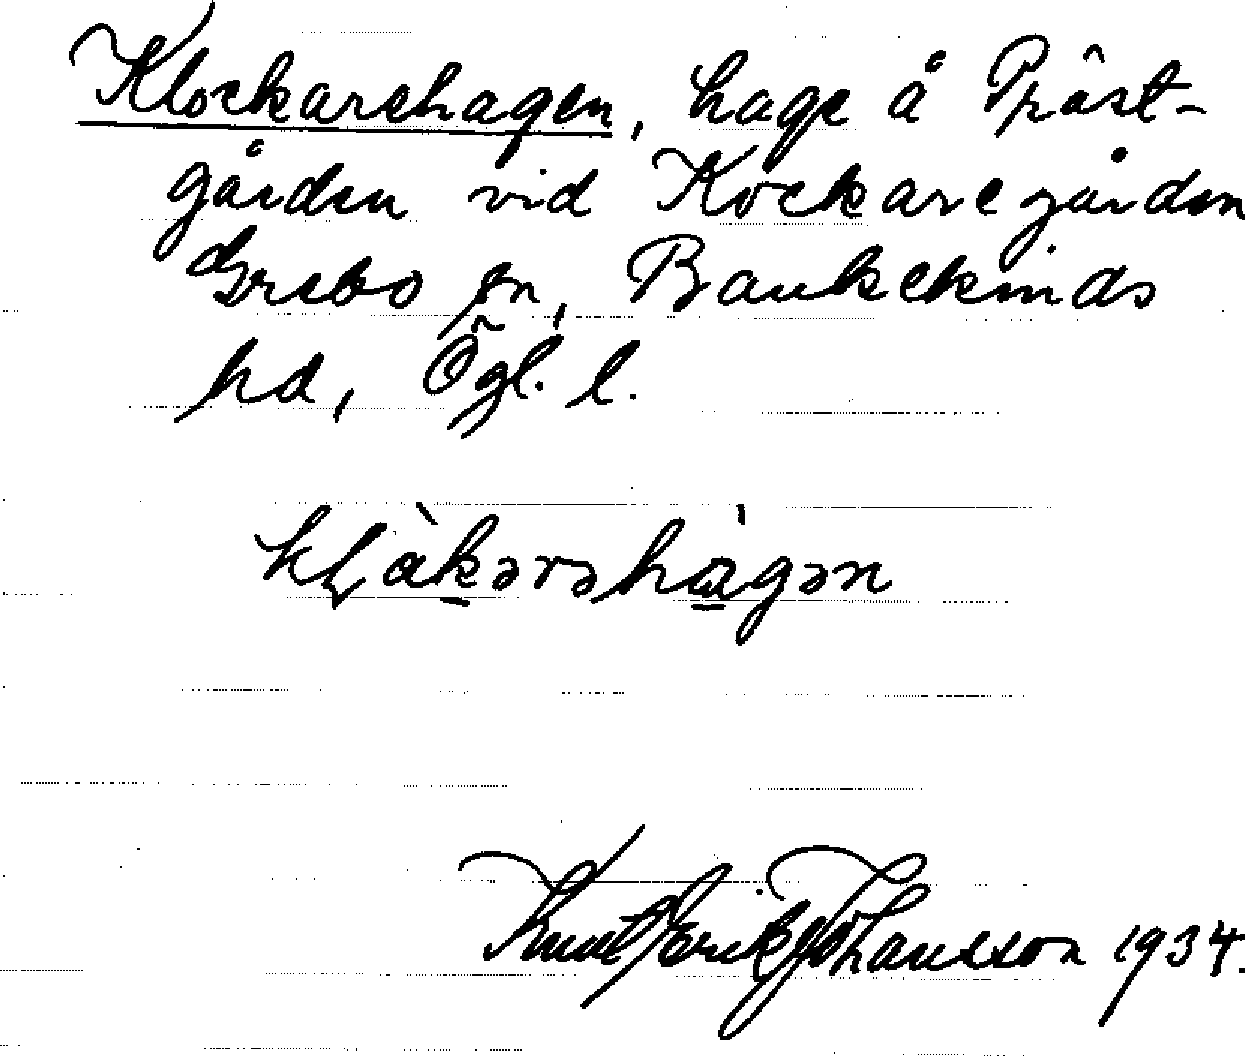 Klockarehagen, hage å Präst-
gården vid Kockaregården
Grebo sn, Bankekinds
hd, Ögl. l.
kļàkərəhágən
Knut Erik Johansson 1934.